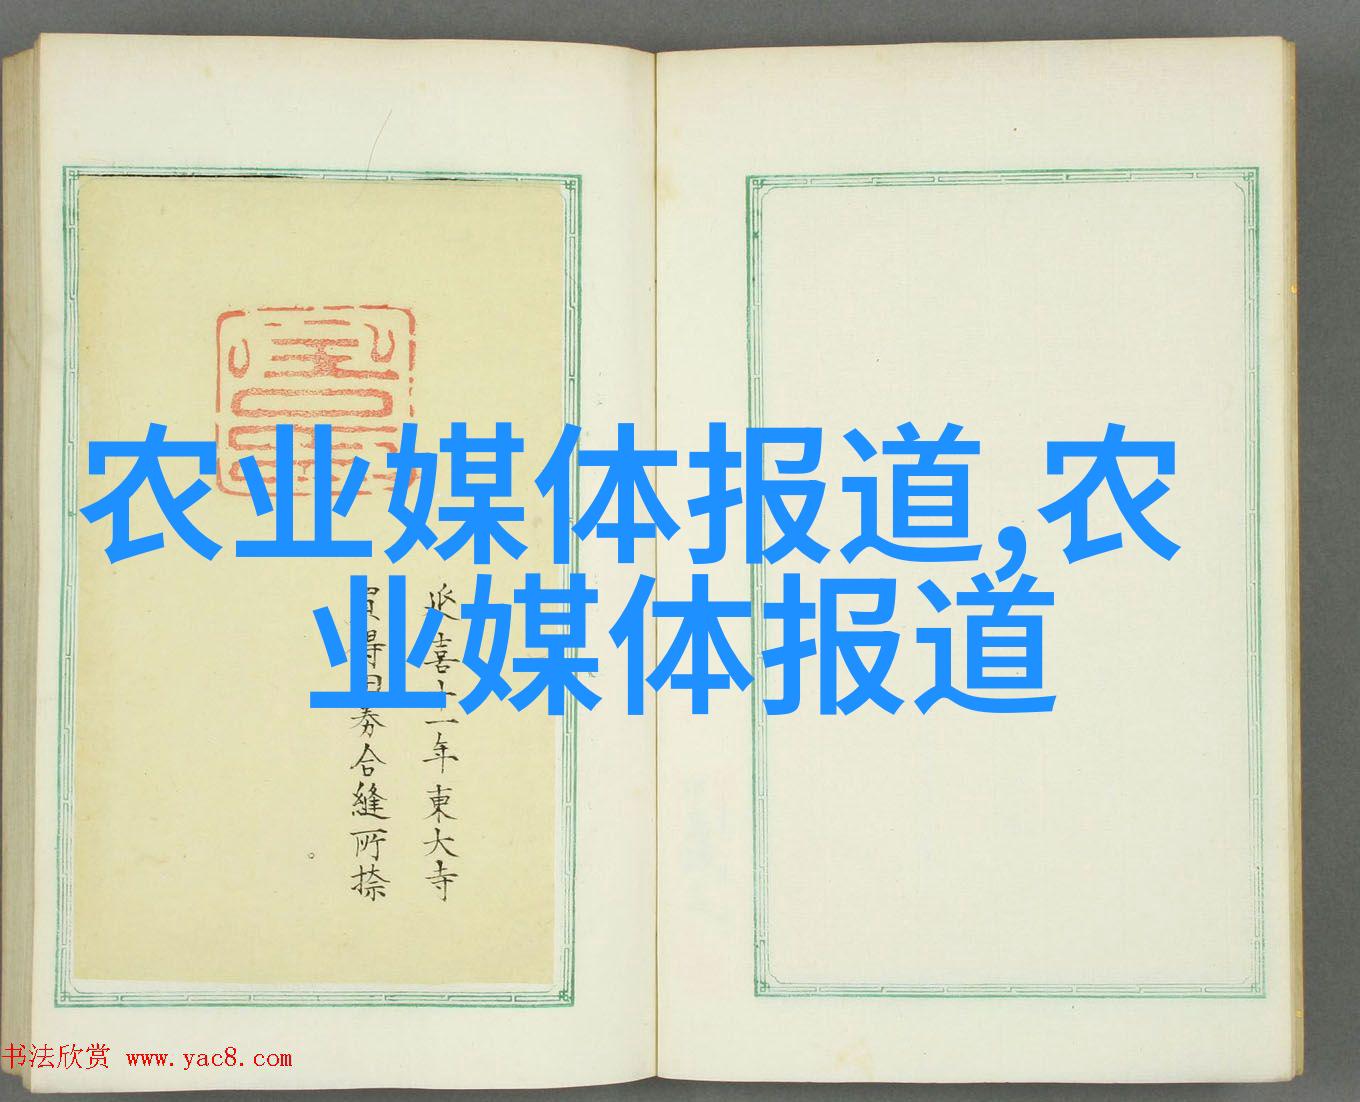 农业媒体报道,农
业媒体报道
延喜十一年東大寺
券合縫所捺
书法欣赏 www.yac8.com